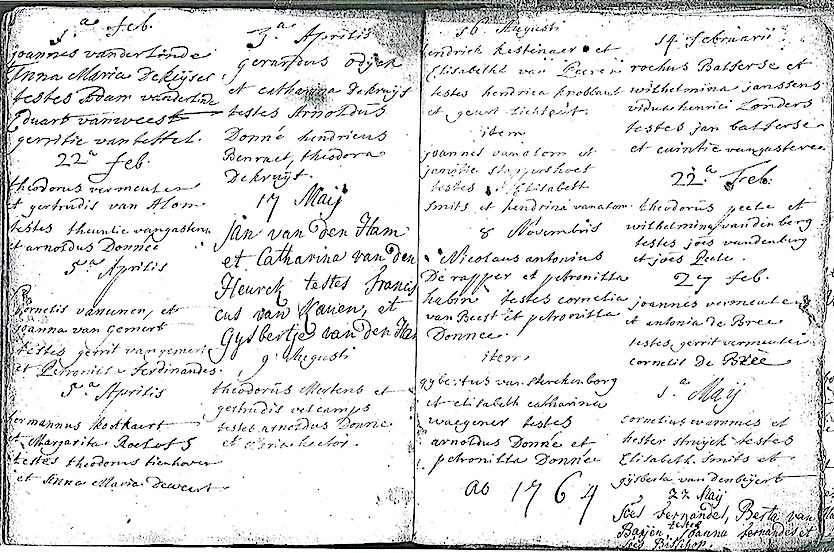 5.a feb.
joannes vanderlinde
Anna Maria Dekeijser
testes Adam vanderlinde
Eduart vanweest
gerritie vantettel.
22.a feb.
theodorus vermeulen
et gertrudis van Alom
testes theuntie vangasteren
et arnoldus Donnée
5.a Aprilis
Cornelis vanunen, et
joanna van Gemert
testes gerrit vangemert
et Petronilla Ferdinandes.
5.a Aprilis
hermannus Kookaert
et Margarita Roelofs
testes theodorus tienhoven
et Anna Maria Deweert
3.a Aprilis
gerardus odijen
et catharina dekruijs
testes Arnoldus
Donné hendricus
Benraet, theodora
Dekruijst.
17 Maij
Jan van den Ham
et Catharina van den
Heurck testes Francis
cus van Kauen, et
Gijsbertje van den Ham
9. Augusti
theodorus Mertens et
gertrudis velcamps
testes arnoldus Donnée
et Maria hector.
16 Augusti
hendrick kestenaer et
Elisabetha van Leeren
testes hendrica knoblaut
et geurt lichtaert.
item
joannes vanalom et
jannitie stappershoet
testes Elisabeth
Smits et hendrina vanalom
8 Novembris
Nicolaus antonius
De rapper et petronilla
habin testes cornelia
van Beest et petronilla
Donnee.
item
gijbertus van sterckenborg
et elisabeth catharina
waegener testes
arnoldus Donné et
petronilla Donnée
ao 1764
14 februarii
rochus Batserse et
wilhelmina janssens
vidua henrici Zonders
testes jan batserse
et cuintie vangasteren
22.a Feb.
theodorus peele et
wilhelmina vandenberg
testes joes vandenberg
et joes Peele.
27 feb.
joannes vermeulen
et antonia de Bree
testes, gerrit vermeulen
cornelis de Brée
5.a Maij
cornelius wammes et
hester struijck testes
Elisabeth Smits et
gijsberta vandenbijert
22 Maij
Joes Fernandes, Berta van
Baijen testes Joanna Fernandes et
Joes Bisschop.